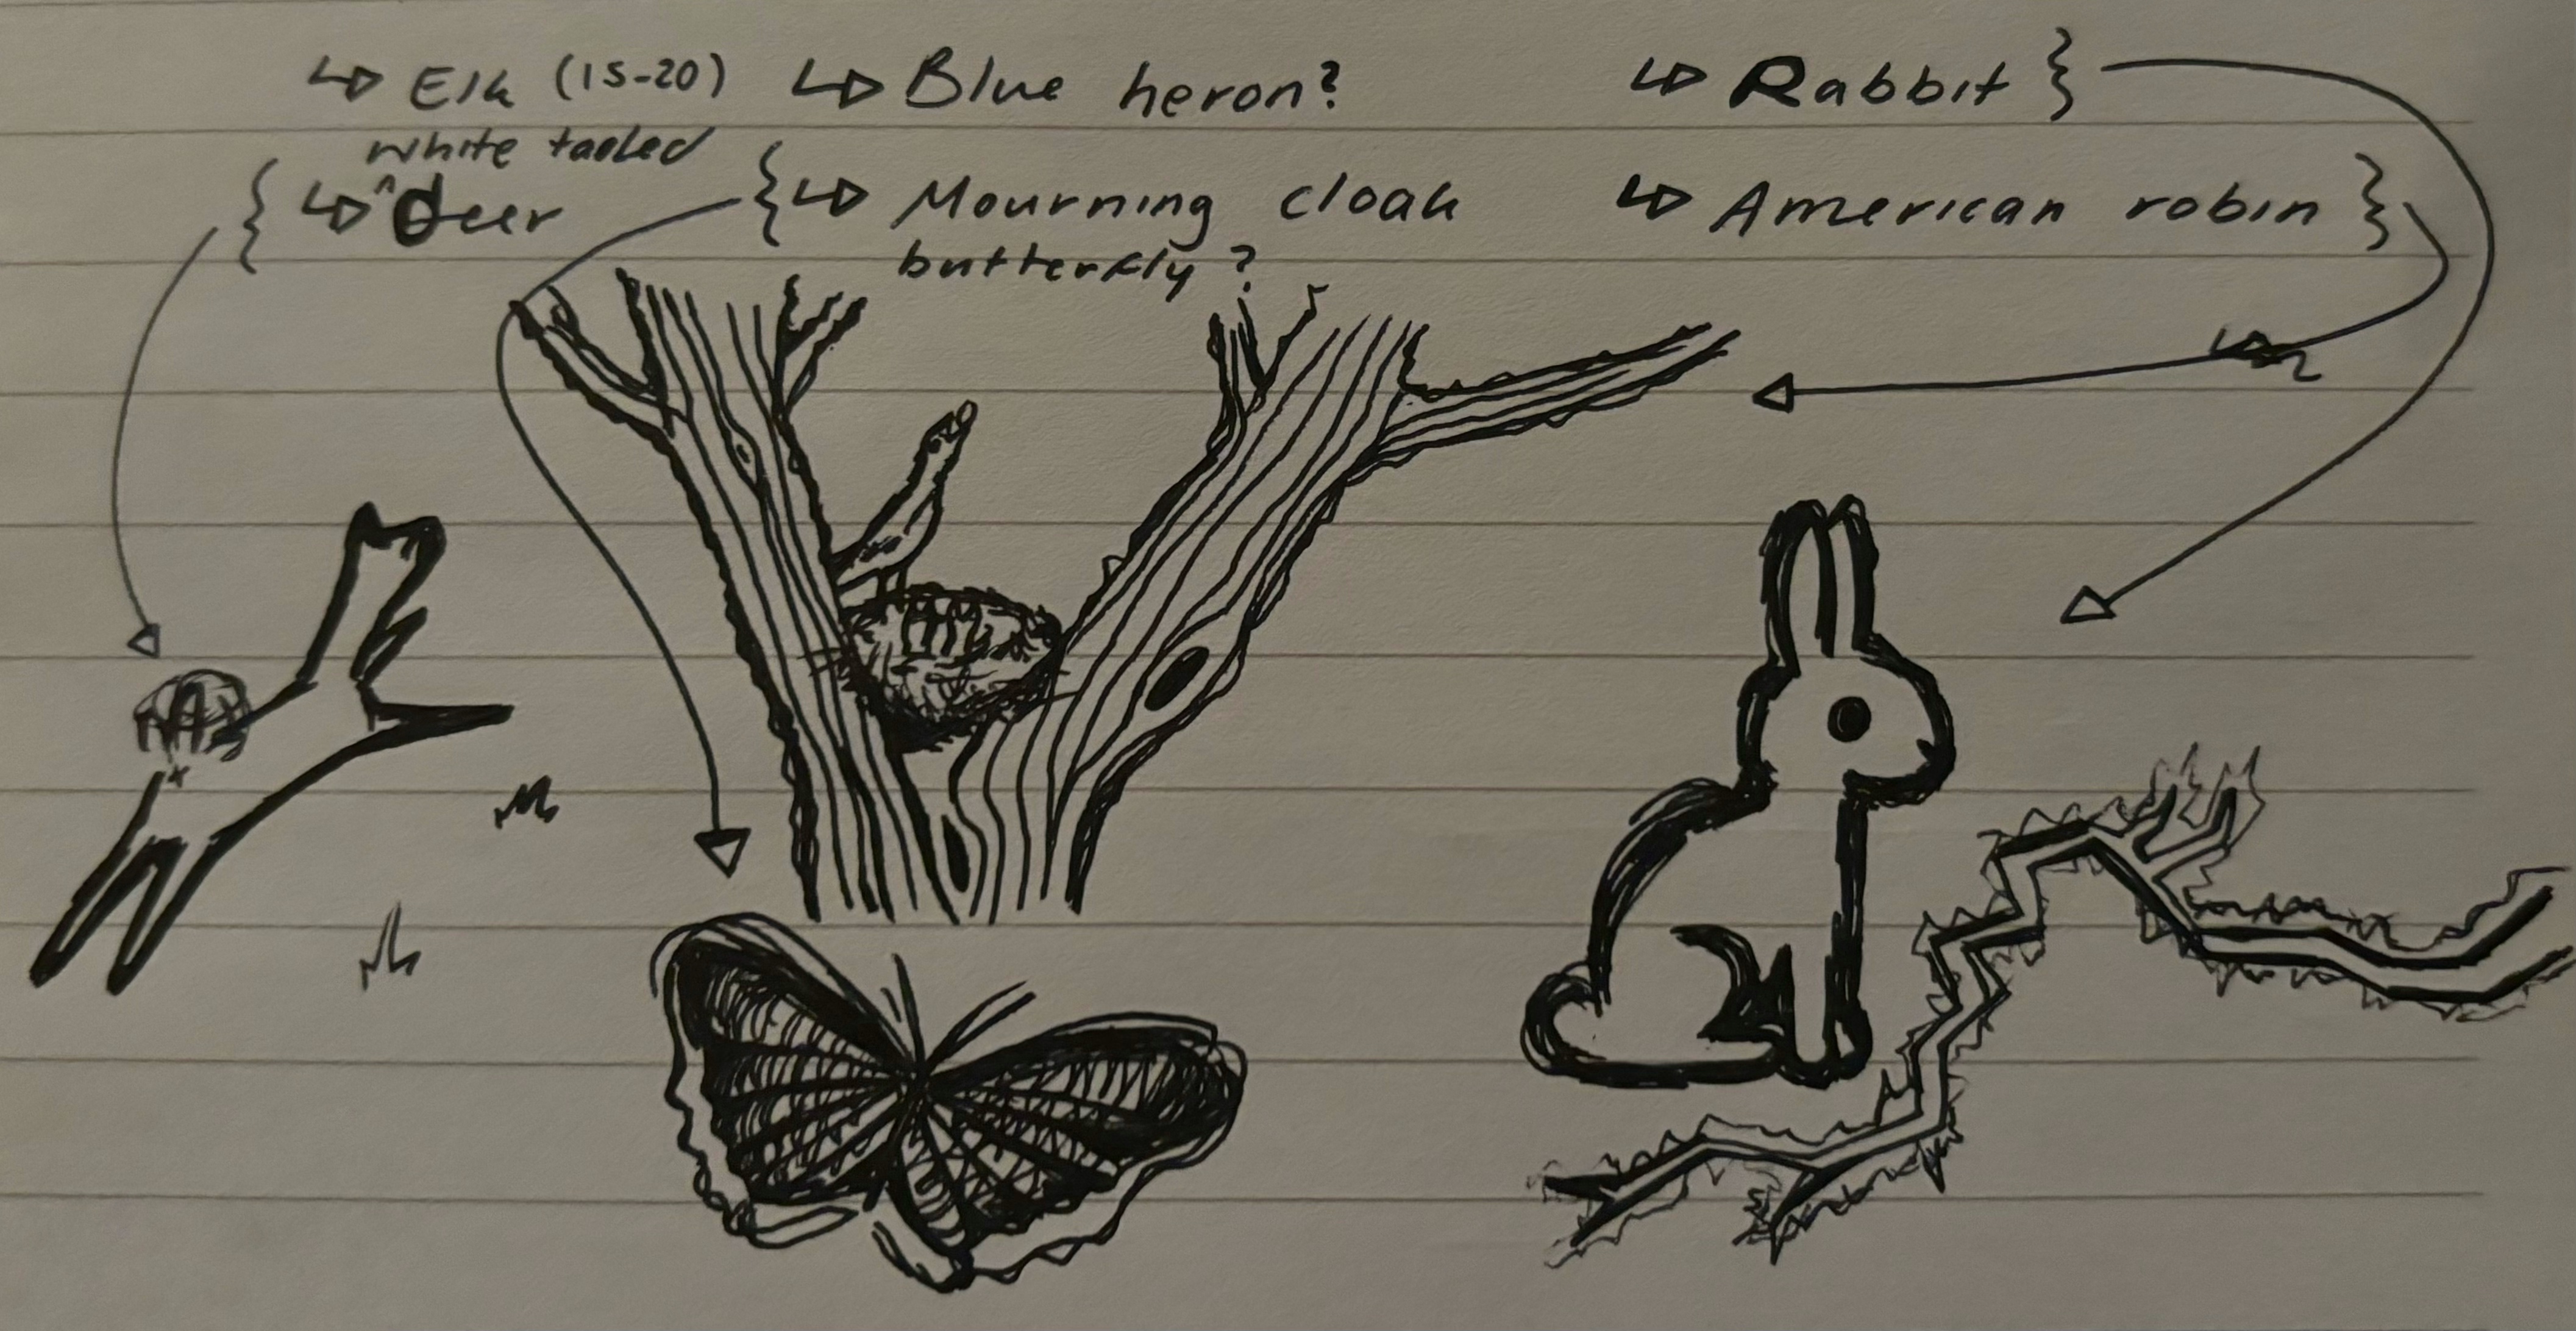 ↳ Elk (15-20) ↳ Blue heron? ↳ Rabbit }
white tailed
{ ↳ ^deer { ↳ Mourning cloak ↳ American robin }
butterfly?